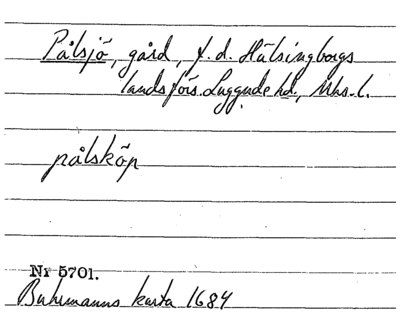 Pålsjö, gård, f.d. Hälsingborgs
landsförs. Luggude hd., Mhs. l.
pålsköp
Nr 5701.
Buhrmanns karta 1684